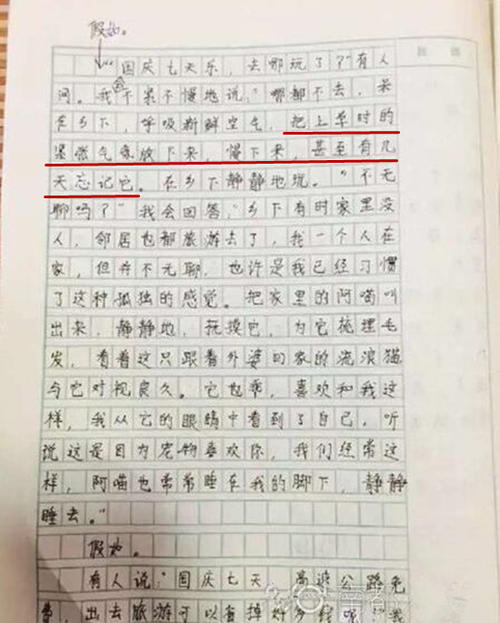 假如。
“国庆七天乐，去哪玩了？”有人
问。我会不紧不慢地说：“哪都不去，呆
在乡下，呼吸新鲜空气，把上学时的
紧张气氛放下来，慢下来，甚至有几
天忘记它。在乡下静静地玩。”“不无
聊吗？”我会回答：“乡下有时家里没
人，邻居也都旅游去了，我一个人在
家，但并不无聊，也许是我已经习惯
了这种孤独的感觉。把家里的阿喵叫
出来，静静地，抚摸它，为它梳理毛
发，看着这只跟着外婆回家的流浪猫
与它对视良久。它也乖，喜欢和我这
样，我从它的眼睛中看到了自己，听
说这是因为宠物喜欢你，我们经常这
样，阿喵也常常睡在我的脚下，静静
睡去。”
假如。
有人说：“国庆七天，高速公路免
费，出去旅游可以省掉好多钱呢！”我